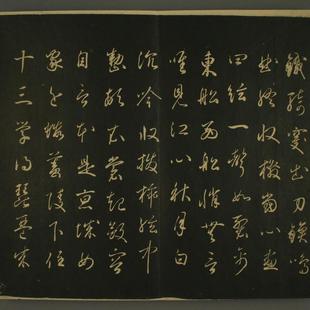 鐵騎突出刀鎗鳴
曲終收撥當心畫
四絃一聲如裂帛
東船西船悄無言
唯見江心秋月白
沉吟收撥插絃中
整頓衣裳起斂容
自言本是京城女
家在蝦蟇陵下住
十三學得琵琶成